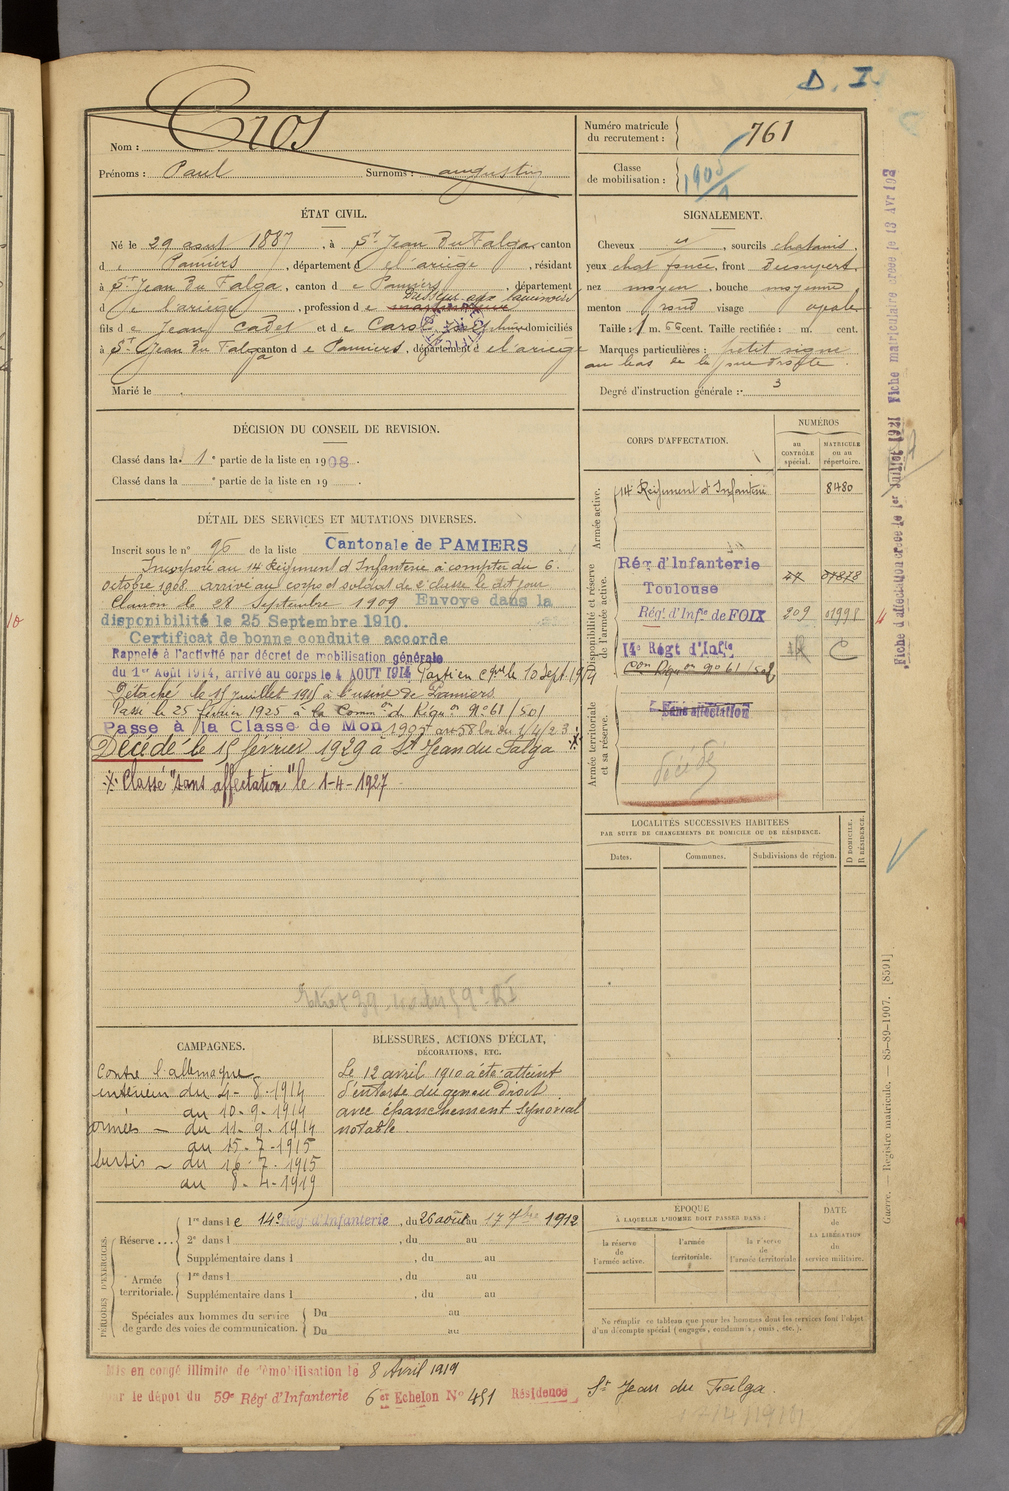 D. I.
Nom : Cros
Prénoms : Paul Surnoms : augustin
Numéro matricule du recrutement : 761
Classe de mobilisation : 1905
ÉTAT CIVIL.
Né le 29 aout 1887, à St Jean Du Falga, canton
de Pamiers, département d el'ariège, résidant
à St Jean Du Falga, canton d e Pamiers, département
d e l'ariège, profession d e
fils d e Jean Cadet et d e domiciliés
à St Jean Du Falga canton d e Pamiers, département d el'ariège
Marié le
SIGNALEMENT.
Cheveux et, sourcils chatains,
yeux chat foncé, front Decouvert,
nez moyen, bouche moyenne
menton rond visage ovale
Taille : 1 m. 66 cent. Taille rectifiée : m. cent.
Marques particulières : petit
au bas de la joue droite.
Degré d'instruction générale : 3
DÉCISION DU CONSEIL DE REVISION.
Classé dans la 1e partie de la liste en 1908.
Classé dans la e partie de la liste en 19 .
DÉTAIL DES SERVICES ET MUTATIONS DIVERSES.
Inscrit sous le n° 96 de la liste Cantonale de PAMIERS
Incorporé au 14 Régiment d'Infanterie à compter du 6
octobre 1908, arrivé au corps et soldat de 2e classe le dit jour
Clairon le 28 Septembre 1909 Envoyé dans la
disponibilité le 25 Septembre 1910.
Certificat de bonne conduite accordé
Rappelé à l'activité par décret de mobilisation générale
du 1er Août 1914, arrivé au corps le 4 AOUT 1914 Parti en cgne le 10 Sept 1914
Détaché le 15 juillet 1915 à l'usine de Pamiers
Passé le 25 février 1925 à la Common de Réquon N° 61/501
Passé à la Classe de Mon 1905 art 58 loi du 1/4/23
Décédé le 15 février 1929 à St Jean du Falga
※ Classé "sans affectation" le 1-4-1927
CORPS D'AFFECTATION.
NUMÉROS
au CONTRÔLE spécial.
MATRICULE ou au répertoire.
Armée active.
14 Régiment d'Infanterie 8480
Disponibilité et réserve de l'armée active.
Rég. d'Infanterie
Toulouse
Régt d'Infie de FOIX 209 01998
14e Régt d'Infie C
Con Réquon N° 61/502
Armée territoriale et sa réserve.
Sans affectation
décédé
LOCALITÉS SUCCESSIVES HABITÉES
PAR SUITE DE CHANGEMENTS DE DOMICILE OU DE RÉSIDENCE.
Dates. Communes. Subdivisions de région. D DOMICILE. R RÉSIDENCE.
CAMPAGNES.
Contre l'allemagne
intérieur du 4-8-1914
au 10-9-1914
armées — du 11-9-1914
au 15-7-1915
du 16-7-1915
au 8-4-1919
BLESSURES, ACTIONS D'ÉCLAT,
DÉCORATIONS, ETC.
Le 12 avril 1910 a été atteint
d'entorse du genou Droit
avec épanchement synovial
notable.
PÉRIODES D'EXERCICES.
Réserve ... 1re dans l e 14e Rég d'Infanterie, du 26 août au 17 7bre 1912
2e dans l , du au
Supplémentaire dans l , du au
Armée territoriale. 1re dans l , du au
Supplémentaire dans l , du au
Spéciales aux hommes du service de garde des voies de communication. Du au
Du au
ÉPOQUE
À LAQUELLE L'HOMME DOIT PASSER DANS :
la réserve de l'armée active.
l'armée territoriale.
la réserve de l'armée territoriale
DATE de LA LIBÉRATION du service militaire.
Ne remplir ce tableau que pour les hommes dont les services font l'objet
d'un décompte spécial (engagés, condamnés, omis, etc.).
Mis en congé illimité de démobilisation le 8 Avril 1919
par le dépôt du 59e Régt d'Infanterie 6er Echelon N° 451 Résidence St Jean du Falga.
Fiche d'affectation créée le 1er Juillet 1921 Fiche matriculaire créée le 13 Avr 192
Guerre. — Registre matricule. — 85-89-1907. [8591]